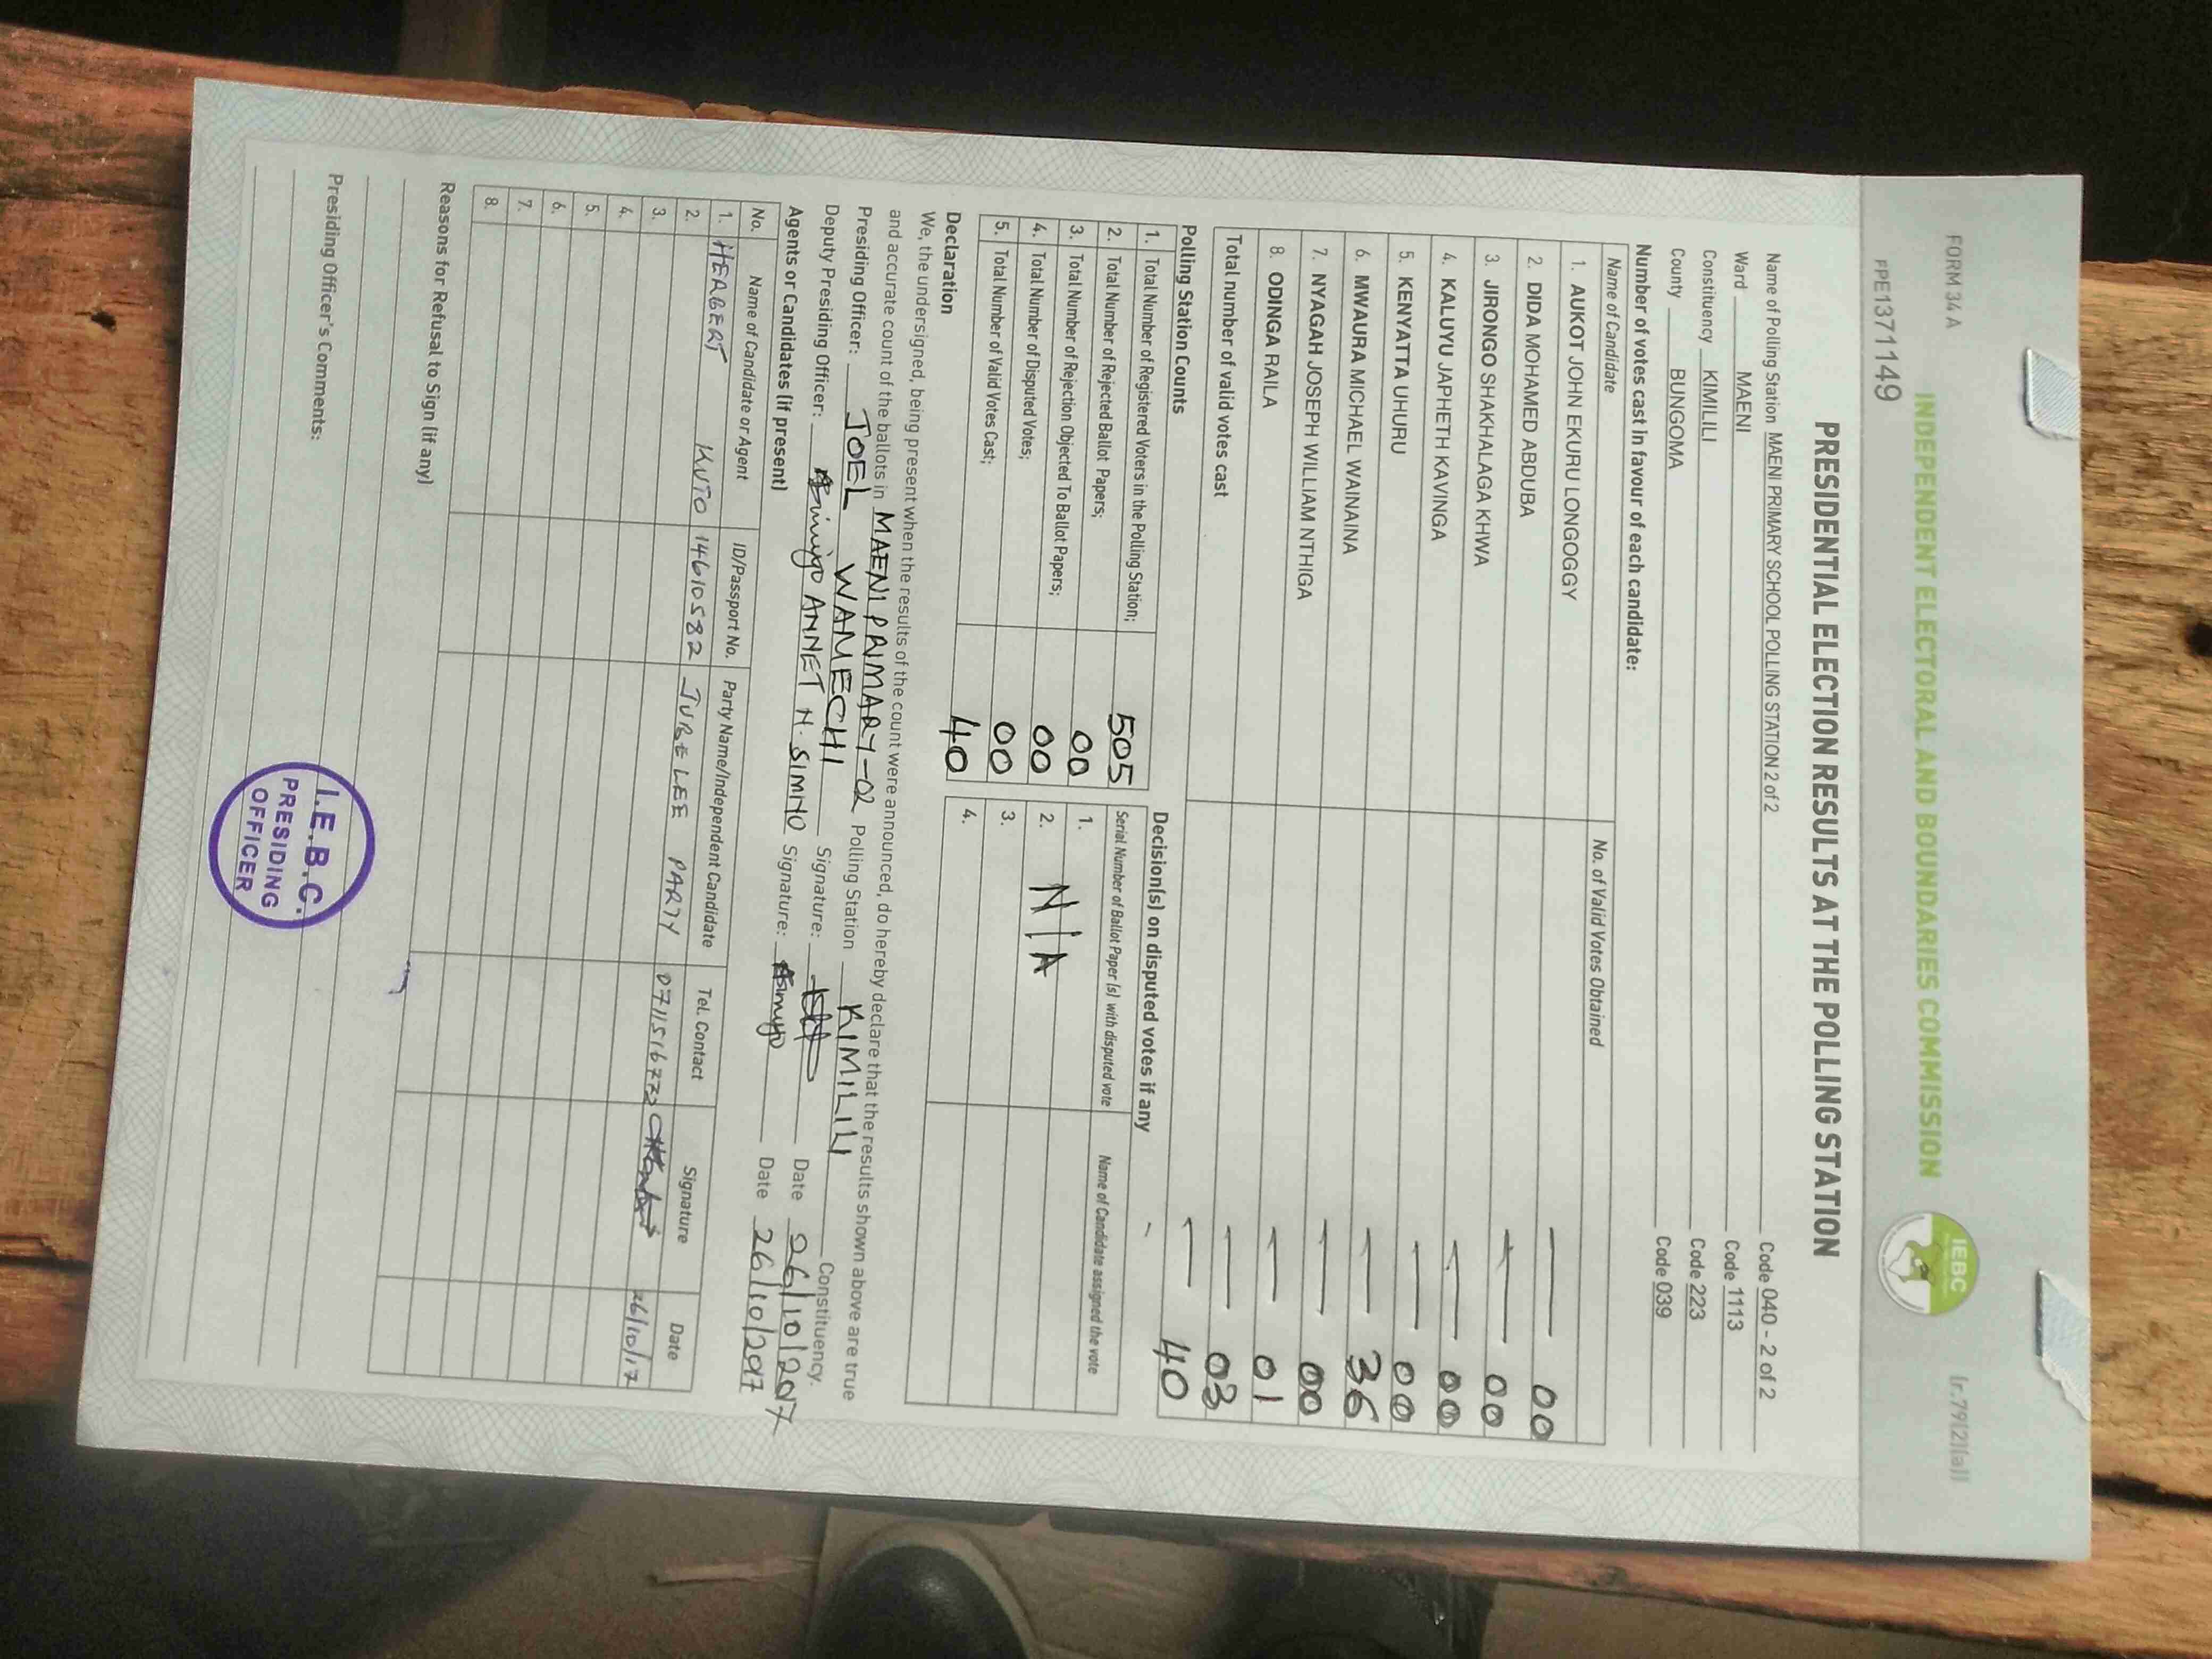 FORM 34 A
(r.79(2)(a))
INDEPENDENT ELECTORAL AND BOUNDARIES COMMISSION
IEBC
FPE1371149
PRESIDENTIAL ELECTION RESULTS AT THE POLLING STATION
Name of Polling Station MAENI PRIMARY SCHOOL POLLING STATION 2 of 2 Code 040 - 2 of 2
Ward MAENI Code 1113
Constituency KIMILILI Code 223
County BUNGOMA Code 039
Number of votes cast in favour of each candidate:
Name of Candidate No. of Valid Votes Obtained
1. AUKOT JOHN EKURU LONGOGGY 00
2. DIDA MOHAMED ABDUBA 00
3. JIRONGO SHAKHALAGA KHWA 00
4. KALUYU JAPHETH KAVINGA 00
5. KENYATTA UHURU 36
6. MWAURA MICHAEL WAINAINA 00
7. NYAGAH JOSEPH WILLIAM NTHIGA 01
8. ODINGA RAILA 03
Total number of valid votes cast 40
Polling Station Counts
1. Total Number of Registered Voters in the Polling Station; 505
2. Total Number of Rejected Ballot Papers; 00
3. Total Number of Rejection Objected To Ballot Papers; 00
4. Total Number of Disputed Votes; 00
5. Total Number of Valid Votes Cast; 40
Decision(s) on disputed votes if any
Serial Number of Ballot Paper (s) with disputed vote Name of Candidate assigned the vote
1.
2. N/A
3.
4.
Declaration
We, the undersigned, being present when the results of the count were announced, do hereby declare that the results shown above are true
and accurate count of the ballots in MAENI PRIMARY-02 Polling Station KIMILILI Constituency.
Presiding Officer: JOEL WAMECHI Signature: Date 26/10/2017
Deputy Presiding Officer: ANNET N. SIMIYO Signature: Date 26/10/2017
Agents or Candidates (if present)
No. Name of Candidate or Agent ID/Passport No. Party Name/Independent Candidate Tel. Contact Signature Date
1. HERBERT KUTO 14610582 JUBELEE PARTY 26/10/17
2.
3.
4.
5.
6.
7.
8.
Reasons for Refusal to Sign (if any)
Presiding Officer's Comments:
I.E.B.C.
PRESIDING
OFFICER